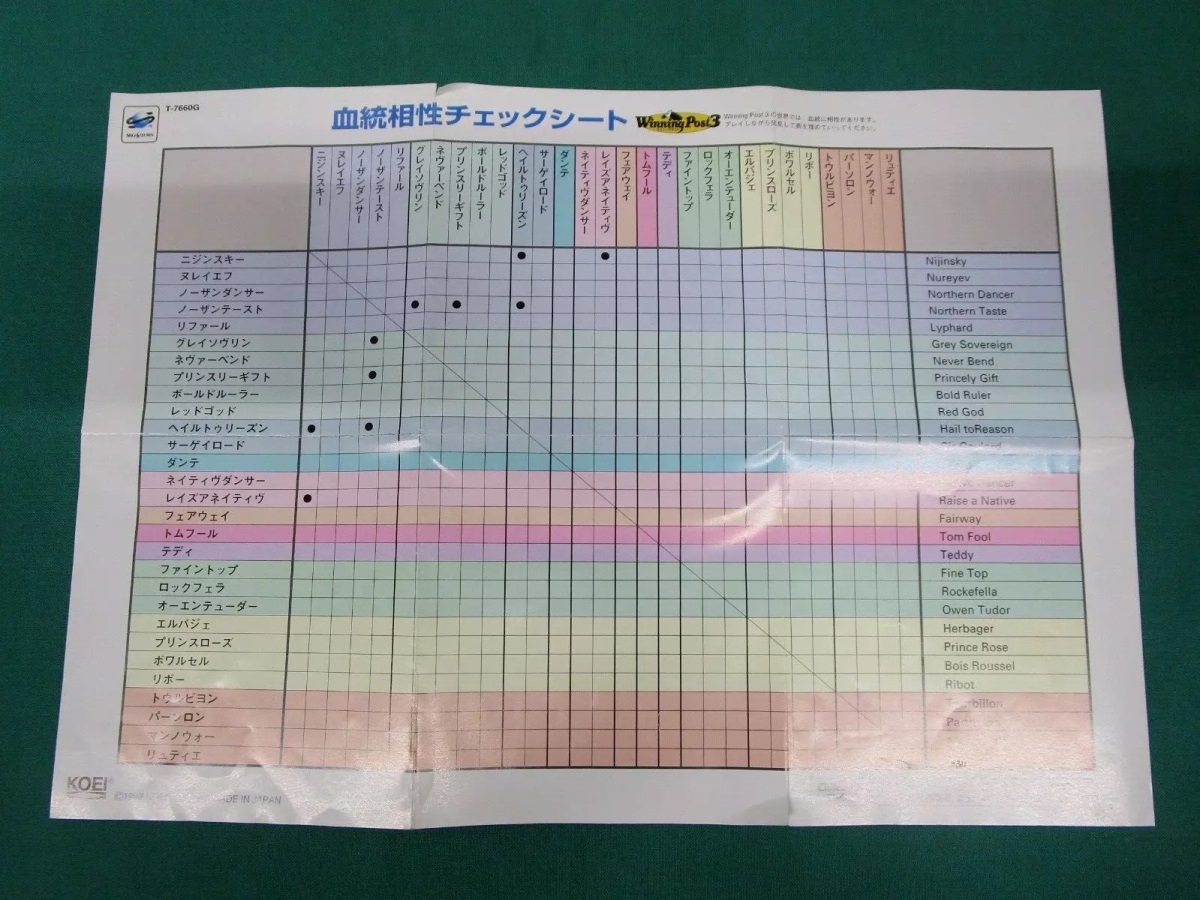 T-7660G
血統相性チェックシート
Winning Post 3
Winning Post 3の世界では、血統に相性があります。
プレイしながら発見して表を埋めていってください。
ニジンスキー
ヌレイエフ
ノーザンダンサー
ノーザンテースト
リファール
グレイソヴリン
ネヴァーベンド
プリンスリーギフト
ボールドルーラー
レッドゴッド
ヘイルトゥリーズン
サーゲイロード
ダンテ
ネイティヴダンサー
レイズアネイティヴ
フェアウェイ
トムフール
テディ
ファイントップ
ロックフェラ
オーエンテューダー
エルバジェ
プリンスローズ
ボワルセル
リボー
トウルビヨン
パーソロン
マンノウォー
リュティエ
ニジンスキー Nijinsky
ヌレイエフ Nureyev
ノーザンダンサー Northern Dancer
ノーザンテースト Northern Taste
リファール Lyphard
グレイソヴリン Grey Sovereign
ネヴァーベンド Never Bend
プリンスリーギフト Princely Gift
ボールドルーラー Bold Ruler
レッドゴッド Red God
ヘイルトゥリーズン Hail toReason
サーゲイロード
ダンテ
ネイティヴダンサー
レイズアネイティヴ Raise a Native
フェアウェイ Fairway
トムフール Tom Fool
テディ Teddy
ファイントップ Fine Top
ロックフェラ Rockefella
オーエンテューダー Owen Tudor
エルバジェ Herbager
プリンスローズ Prince Rose
ボワルセル Bois Roussel
リボー Ribot
トウルビヨン
パーソロン
マンノウォー
リュティエ
KOEI
MADE IN JAPAN